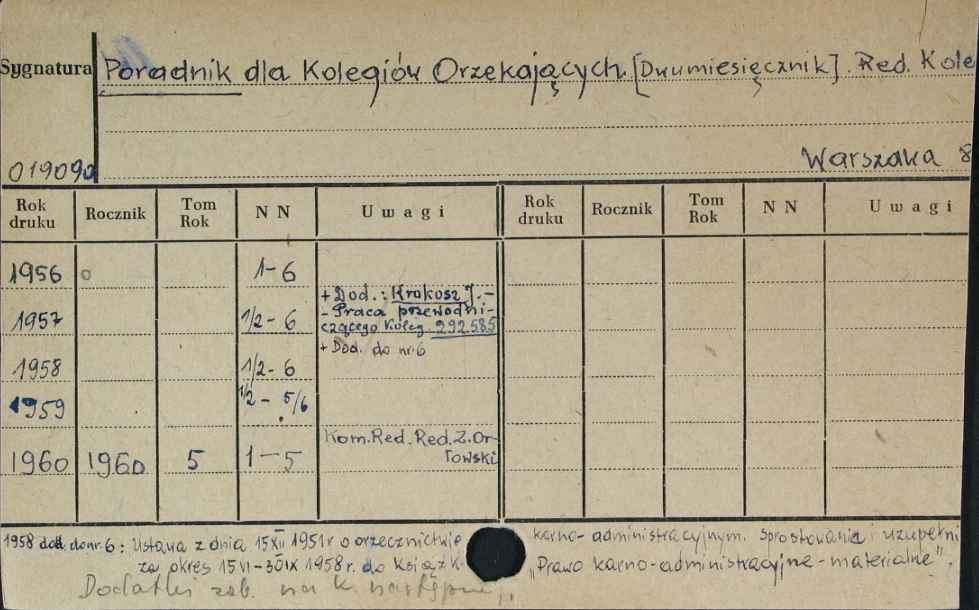 Sygnatura
Poradnik dla Kolegiów Orzekających. [Dwumiesięcznik]. Red. Kole
019090
Warszawa 8
Rok druku Rocznik Tom Rok NN Uwagi Rok druku Rocznik Tom Rok NN Uwagi
1956 1-6
+ Dod.: Krokosz J. -
1957 1/2-6 - Praca przewodni-
czącego Koleg. 292585
+ Dod. do nr 6
1958 1/2-6
1959 1/2-5/6
Kom. Red. Red. Z. Or-
łowski
1960 1960 5 1-5
1958 dod. do nr. 6: Ustawa z dnia 15 XII 1951 r o orzecznictwie karno-administracyjnym. Sprostowania i uzupełni
za okres 15 VI-30 IX 1958 r. do książk. „Prawo karno-administracyjne-materialne".
Dodatki zob. na k. następnej